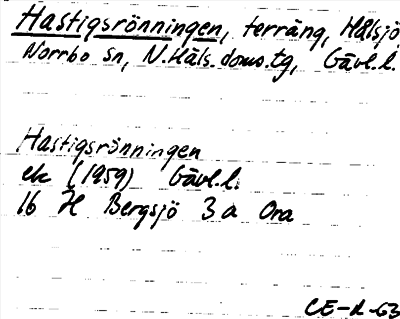 Hastigsrönningen, terräng, Hålsjö
Norrbo sn, N. Häls. doms.tg, Gävl.l.
Hastigsrönningen
ek (1959) Gävl.l.
16 H Bergsjö 3 a Ora
CE-R-63